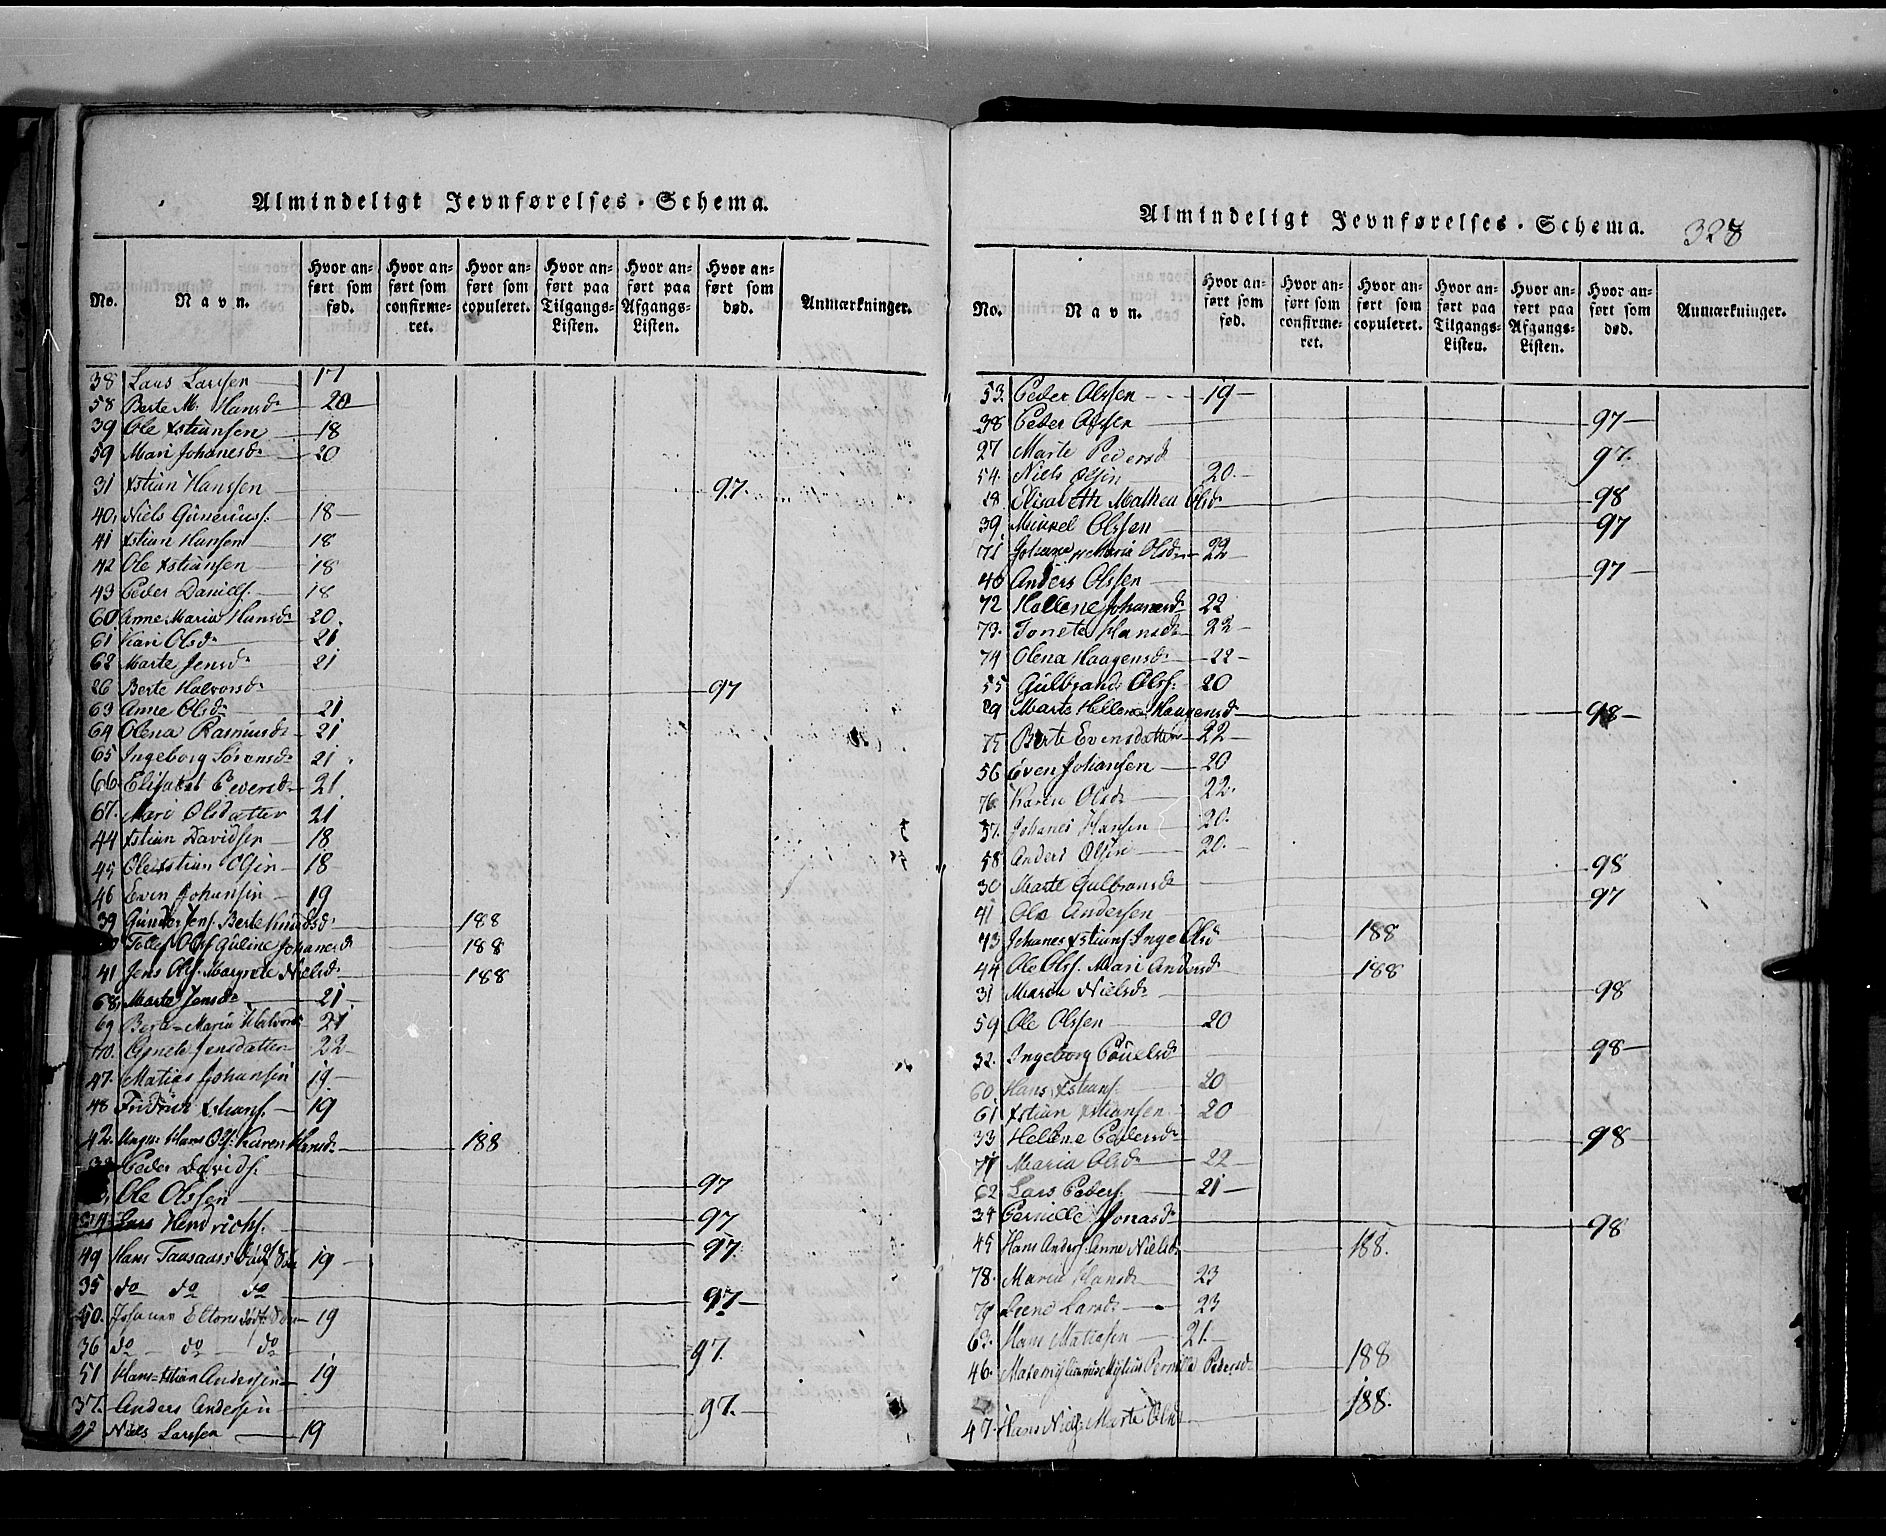 Almindeligt Jevnførelses-Schema.
No. Navn. Hvor anført som fød. Hvor anført som confirmeret. Hvor anført som copuleret. Hvor anført paa Tilgangs-Listen. Hvor anført paa Afgangs-Listen. Hvor anført som død. Anmærkninger.
38 Lars Larssen 17
58 Berte M. Hansd. 20
39 Ole Xstiansen 18
59 Mari Johanesd. 20
31 Xstian Hanssen 97.
40. Niels Guneriusf. 18
41 Xstian Hansen 18
42 Ole Xstiansen 18
43 Peder Danielf. 18
60 Anne Maria Hansd. 20.
61 Kari Olsd. 21
62 Marte Jensd. 21
26 Berte Halvorsd. 97
63 Anne Olsd. 21
64 Olena Rasmusd. 21
65 Ingeborg Sørensd. 21.
66. Elisabet Pedersd. 21.
67. Mari Olsdatter 21
44 Xstian Davidsen 18
45 Ole Xstian Olsen 18
46 Even Johansen 19
39 Gunder Jensf. Berte Knudsd. 188
Tollef Olsf. Guline Johanesd. 188
41 Jens Olsf. Margrete Nielsd. 188
68. Marte Jensd. 21
69 Berte Maria Halvorsd. 21
70. Agnete Jensdatter 22
47. Matias Johansen 19
48 Fridrich Xstiansf. 19
42. Ungk. Hans Olsf. Karen Hansd. 188
Peder Davidsf.
Ole Olssen 97
Lars Hendrichsf. 97
97.
49 Hans 19
35 do do do 97
50. Johannes 19
36 do do do 97.
51 Hans Xstian Andersen 19
37. Anders Andersen 97.
52 Niels Larssen 19
Almindeligt Jevnførelses-Schema. 328
No. Navn. Hvor anført som fød. Hvor anført som confirmeret. Hvor anført som copuleret. Hvor anført paa Tilgangs-Listen. Hvor anført paa Afgangs-Listen. Hvor anført som død. Anmærkninger.
53. Peder Olssen 19
38 Peder Olssen 97
27 Marte Pedersd. 97.
54. Niels Olsen 20.
28. Elisabeth Mathea Olsd. 98
39. Mikkel Olssen 97
71. Johanne Maria Olsd. 22
40 Anders Olssen 97
72 Hellene Johanesd. 22
73. Tonete Hansd. 22
74 Olena Haagensd. 22
55 Gulbrand Olsf. 20
29 Marte Hellene Haagensd. 98
75 Berte Evensdatter 22
56 Even Johansen 20
76. Karen Olsd. 22.
57. Johanes Hansen 20.
58 Anders Olsen 20.
30 Marte Gulbransd. 98
41 Ole Andersen 97
43 Johanes Xstiansf. Inge Olsd. 188
44 Ole Olsf. Mari Andersd. 188
31 Maren Nielsd. 98
59 Ole Olssen 20
32. Ingeborg Poulsd. 98
60 Hans Xstiansf. 20
61 Xstian Xstiansen 20
33 Hellene Pedersd. 98
77 Maria Olsd. 22
62 Lars Pedersf. 21
34 Pernille Jonasd. 98
45 Hans Andersf. Anne Nielsd. 188.
78. Maria Hansd. 23
79 Larsd. 23
63. Hans Matiasen 21.
46. Pernille Pedersd. 188
47. Hans Nielsf. Marte Olsd. 188.